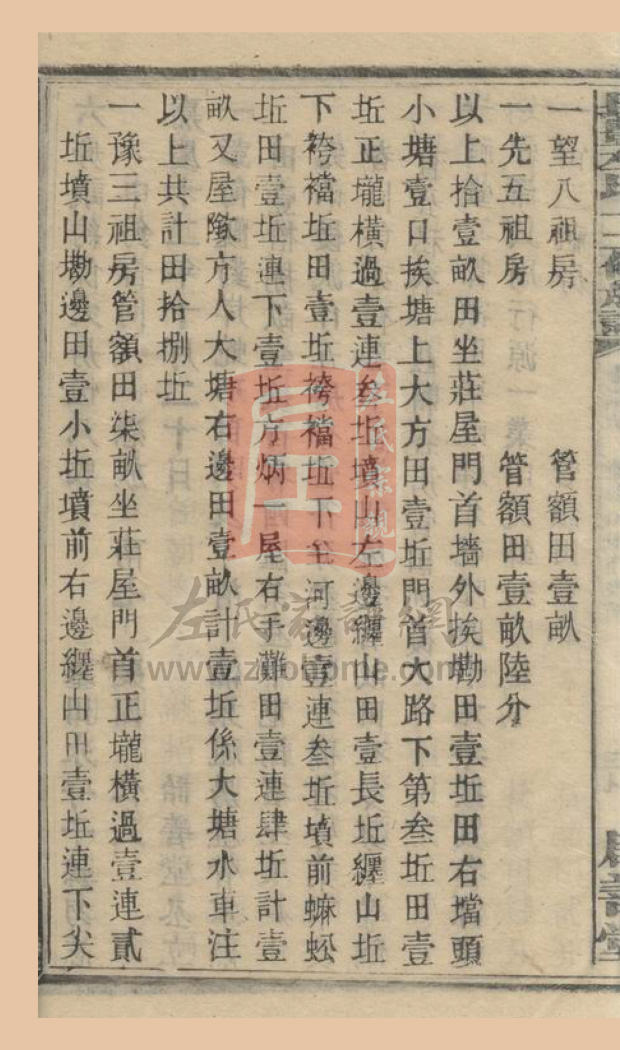 一望八祖房　管額田壹畝
一先五祖房　管額田壹畝陸分
以上拾壹畝田坐莊屋門首墻外挨墈田壹坵田右壋頭
小塘壹口挨塘上大方田壹坵門首大路下第叁坵田壹
坵正壠橫過壹連叁坵墳山左邊纒山田壹長坵纒山坵
下袴襠坵田壹坵袴襠坵下至河邊壹連叁坵墳前蜥蚣
坵田壹坵連下壹坵方炳一屋右手難田壹連肆坵計壹
畝又屋隊方人大塘右邊田壹畝計壹坵係大塘水車注
以上共計田拾捌坵
一豫三祖房管額田柒畝坐莊屋門首正壠橫過壹連貳
坵墳山墈邊田壹小坵墳前右邊纒山田壹坵連下尖
左氏宗親
左氏家譜網